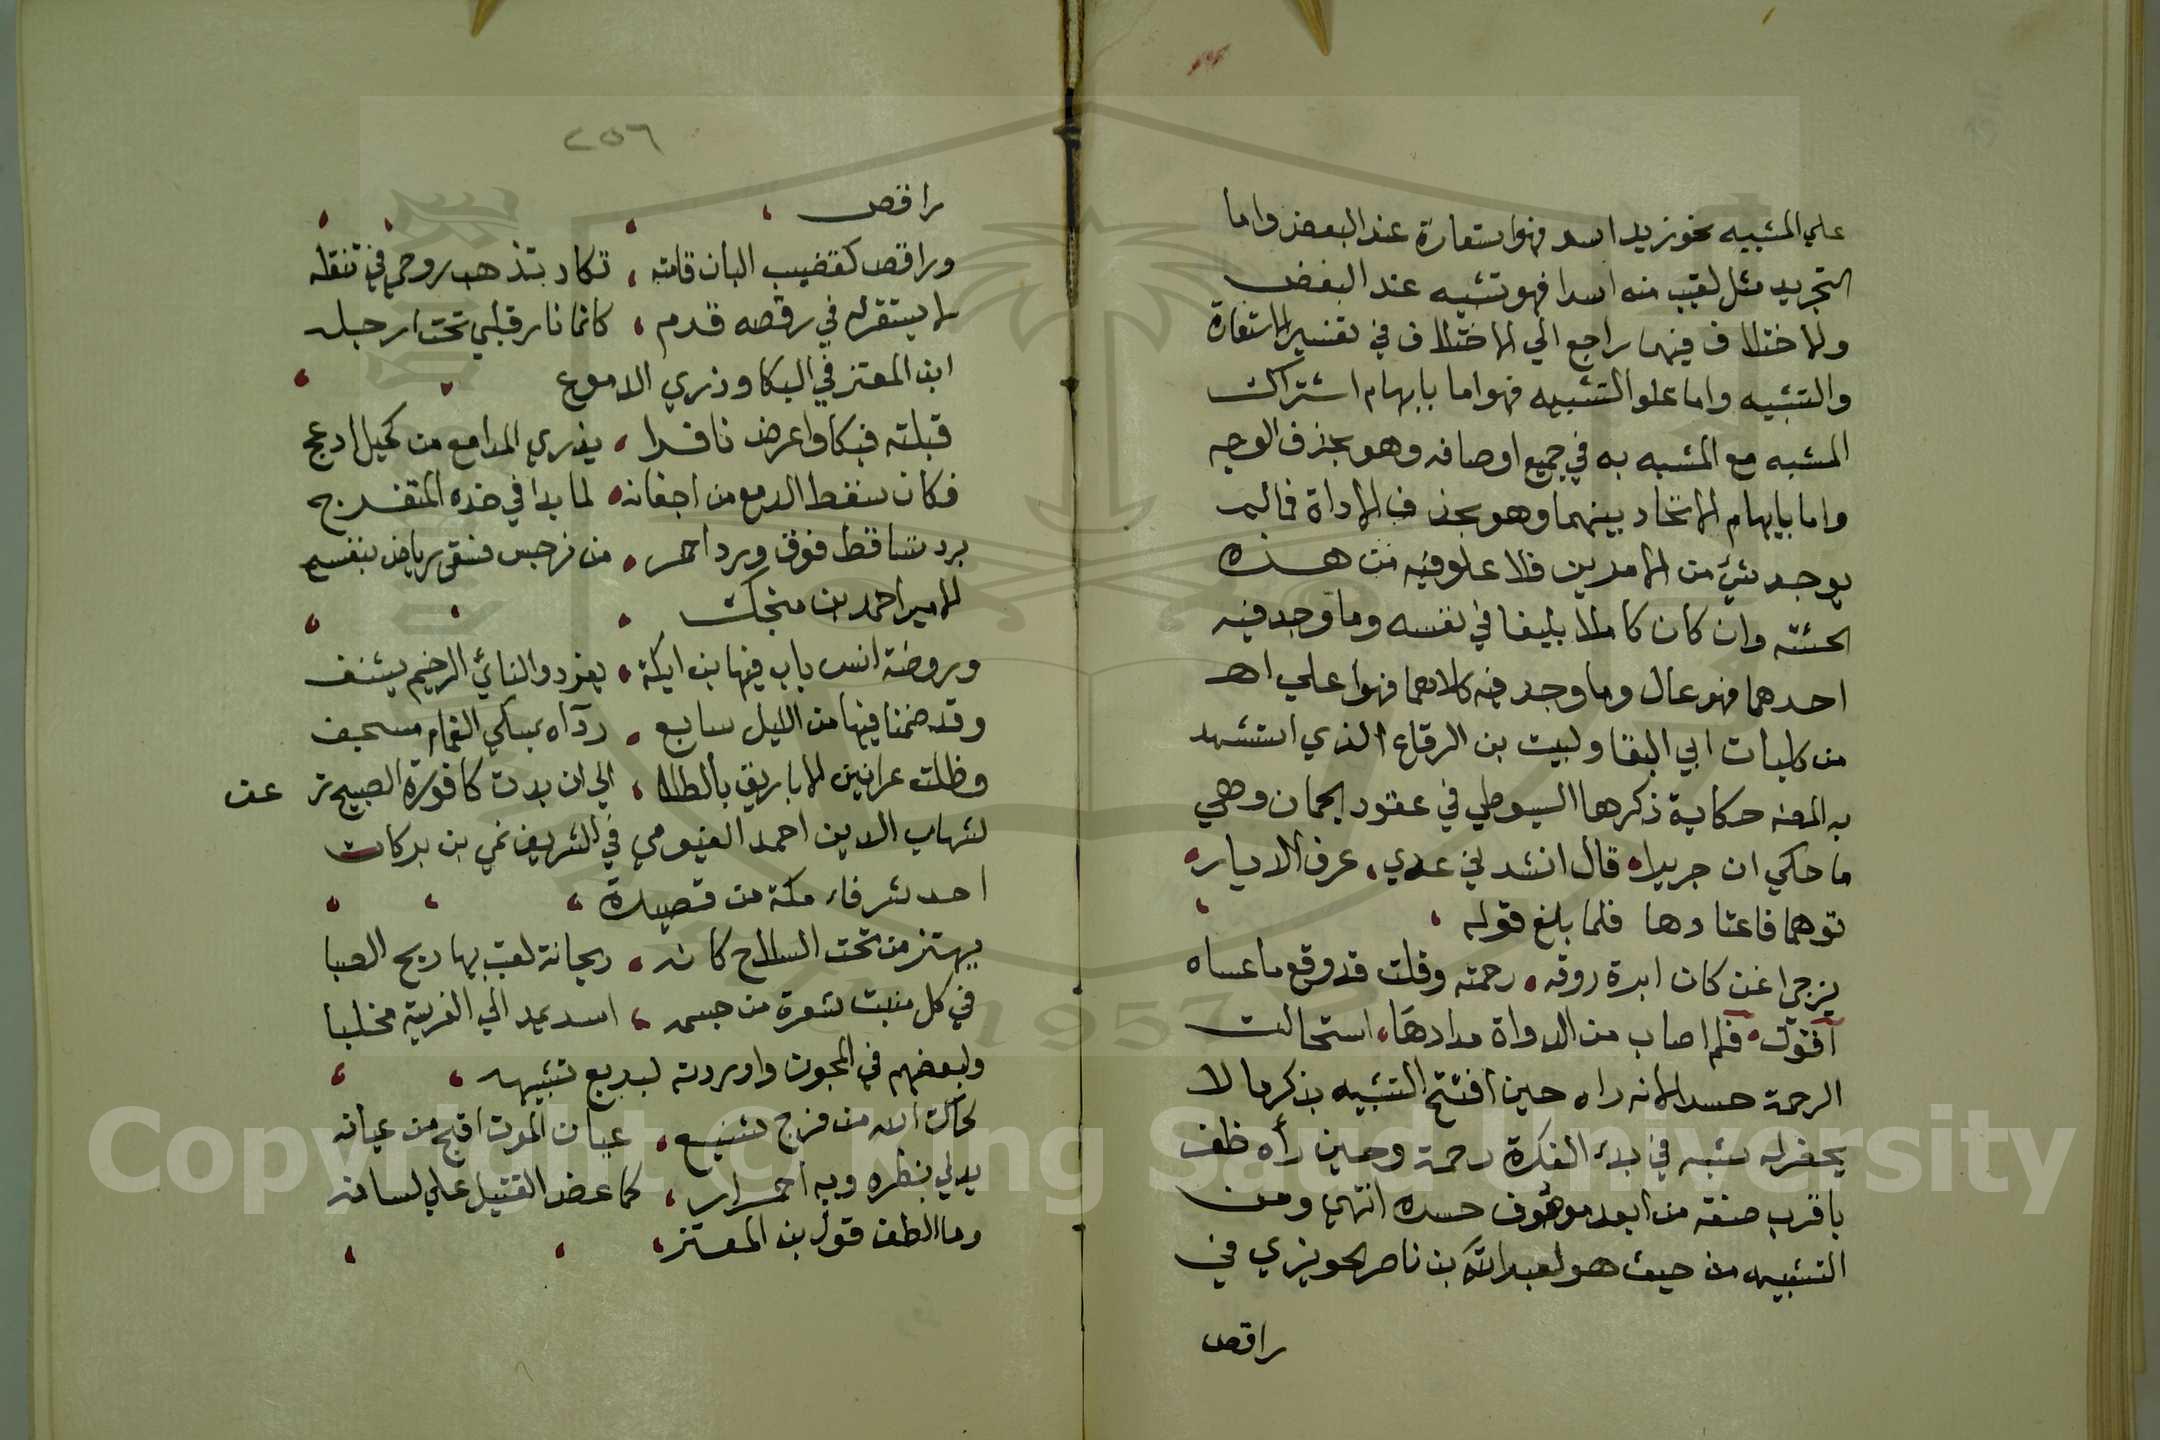 علي المشبيه نحو زيد اسد فهو استعارة عند البعض واما
التجريد مثل لقيت منه اسدا فهو تشبيه عند البعض
والاختلاف فيهما راجع الي الاختلاف في تفسير الاستعارة
والتشبيه واما علو التشبيه فهو اما بابهام اشتراك
المشبه مع المشبه به في جميع اوصافه وهو بحذف الوجه
واما بايهام الاتحاد بينهما وهو بحذف الاداة فما لم
يوجد شئ من الامرين فلا علو فيه من هذه
الحيثية وان كان كاملا بليغا في نفسه وما وجد فيه
احدهما فهو عال وما وجد فيه كلاهما فهو اعلي اهـ
من كليات ابي البقا ولبيت بن الرقاع الذي استشهد
به المص حكاية ذكرها السيوطي في عقود الجمان وهي
ما حكي ان جريرا قال انشدني عدي عرف الديار
توهما فاعتادها فلما بلغ قوله
يزجي اغن كان ابرة روقه رحمته وقلت قد وقع ما عساه
اقول قلم اصاب من الدواة مدادها استحالت
الرحمة حسدا لانه راه حين افتتح التشبيه بذكر ما لا
يحضر له شبه في بدء الفكرة رحمة وحين رأه ظفر
باقرب صفة من ابعد موصوف حسده انتهي ومن
التشبيه من حيث هو لعبد الله بن ناصر الحويزي في
راقص
٢٥٦
راقص
وراقص كقضيب البان قامته تكاد تذهب روحي في تنقله
لا يستقر له في رقصه قدم كانما نار قلبي تحت ارجله
ابن المعتز في البكا وذري الدموع
قبلته فبكا واعرض نافرا يذري المدامع من كحيل ادعج
فكان سقط الدمع من اجفانه لما بدا في خده المتضرج
برد تساقط فوق ورد احمر من نرجس فسقي رياض بنفسج
للامير احمد بن منجك
وروضة انس بات فيها بن ايكة يغرد والناي الرخيم يشنف
وقد ضمنا فيها من الليل سابغ رداء بمسكي الغمام مسجف
وظلت عرانين الاباريق بالطلا الي ان بدت كافورة الصبح تر عف
لشهاب الدين احمد الفيومي في الشريف نمي بن بركات
احد شرفاء مكة من قصيدة
يهتز من تحت السلاح كانه ريحانة لعبت بها ريح الصبا
في كل منبت شعرة من جسمه اسد يمد الي الفريسة مخلبا
ولبعضهم في المجون واوردته لبديع تشبيهه
لحاك الله من فرج شنيع عيان الموت اقبح من عيانه
يدلي بظره وبه احمرار كما عض القتيل علي لسانه
وما الطف قول بن المعتز
Copyright © King Saud University
1957